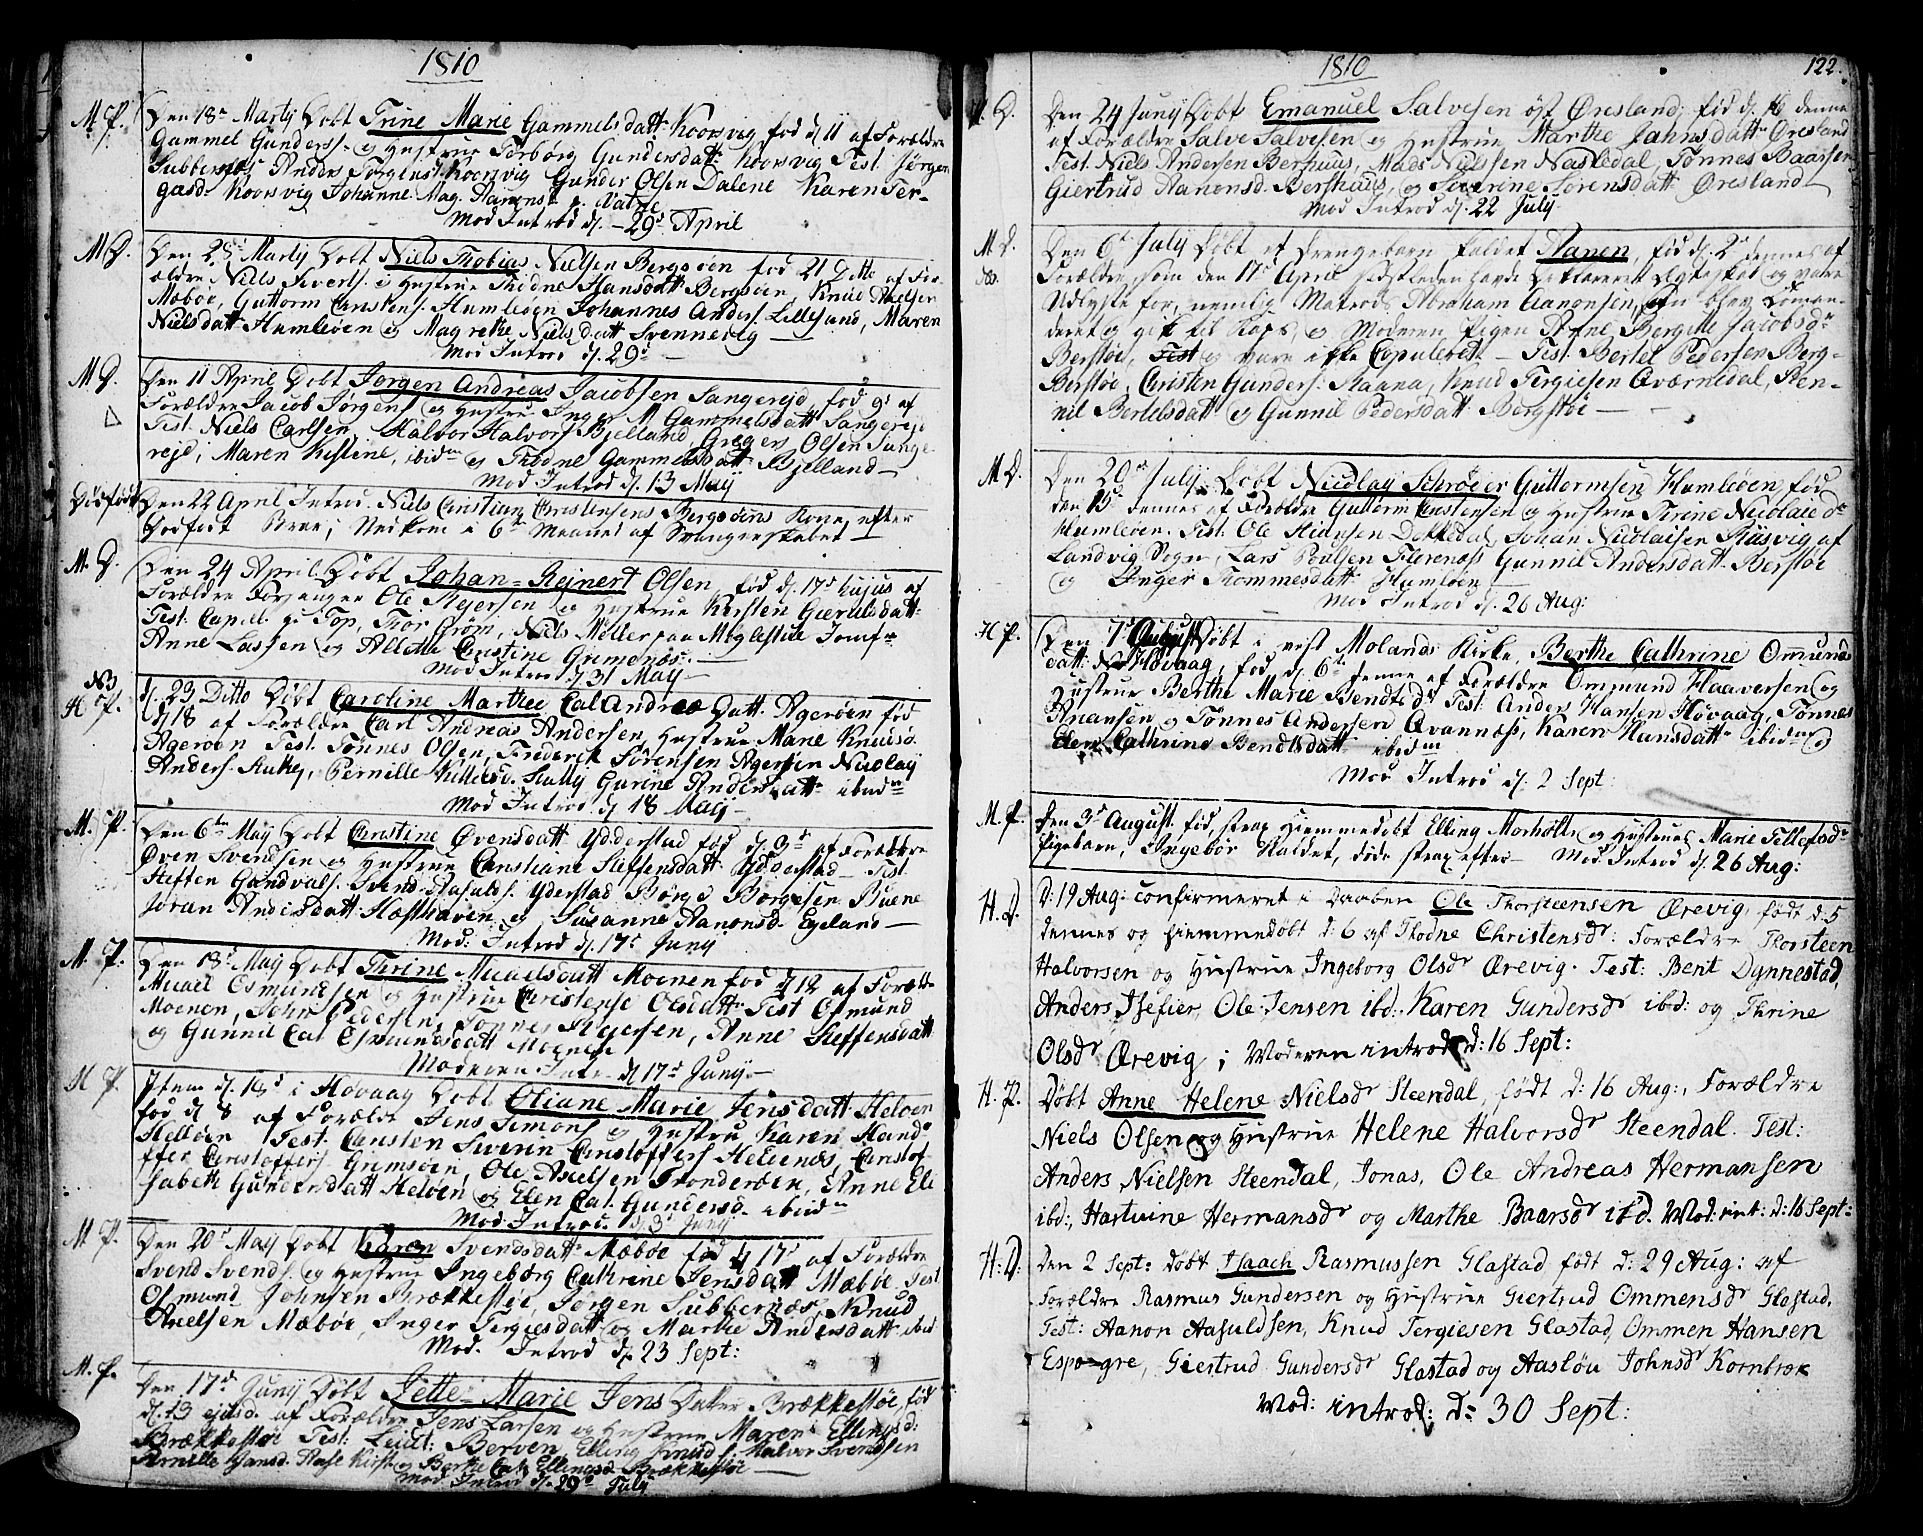 1810
M. P. Den 18de Marty Døbt Trine Marie Gammelsdatt Koorsvig fød d. 11 af Forældre
Gammel Gunders. og Hustrue Torbørg Gundersdatt Koorsvig Test. Jørgen
Anders Koorsvig Gunder Olsen Dalene Karen Ter-
Koorsvig Johanne Mag.
Mod Introd d. 29d April
M D. Den 25 Marty Døbt Niels Thobias Nielsen Bergsøen fød 21 Ditto af For-
ældre Niels Siverts. og Hustrue Thodne Hansdatt Bergsøen Knud Nielsen
Mæbøe, Guttorm Humleøen Johannes Anders. Lillesund, Maren
Nielsdatt Humleøen og Magrethe Nielsdatt Svennevig
Mod Introd d. 29d
M D. Den 11 April Døbt Jørgen Andreas Jacobsen Sangereid, fød 9d af
Forældre Jacob Jørgens. og Hustrue Inger M. Gammelsdatt Sangereid
Test. Niels Carlsen, Halvor Halvors. Bjelland, Gregers Olsen Sange-
reid, Maren Kistine, ibidm og Thodne Gammelsdatt Bjelland
Mod Introd d. 13 May
Dødfødt Den 22 April Introd. Niels Christian Christensens Bergsøens Kone, efter
Nedkom i 6te Maaned af Svangerskabet
M. D. Den 24 April Døbt Johan-Rejnert Olsen, fød d. 17d hujus af
Forældre Forsanger Ole Rejersen og Hustrue Kirsten Gierulsdatt
Test. Capit. Top, Thor Grøm, Niels Møller paa Møglestue Jomfr
Anne Lassen og Christine Grimenæs
Mod Introd 31 May
N3
H P. d. 23 Ditto Døbt Caroline Marthee CalAndreæ Datt. Agerøen fød
d. 18 af Forældre Carl Andreas Andersen, Hustrue Marie Knudsd.
Agerøen Test. Tønnes Olsen, Frederck Sørensen Agerøen Nicolay
Anders. Pernille Gurine Andersdatt ibidm
Mod Introd d 18 May
M. P. Den 6te May Døbt Christine Øvensdatt Ydderstad fød d. 3d af Forældre
Øven Svendsen og Hustrue Christiane Steffensdatt Ydderstad Test.
Steffen Gundvals. Svend Aasulds. Yderstad Børge Børgesen Buene
Joran Andersdatt Hæsthaven og Susanne Aanonsd. Egeland
Mod: Introd d. 17d Juny
M. P. Den 18d May Døbt Thrine Micaelsdatt Moenen fød d 12 af Foræld:
Micael Osmundsen og Hustrue Christense Olsdatt Test Osmund
Moenen, John Pedersen, Tønnes Rejersen, Anne Steffensdatt
og Gunnil Cat Osmundsdatt Moenen
Moderen Intr. d 17d Juny
H P. Item d. i Høvaag Døbt Oliane Marie Jensdatt Heløen
fød d 8 af Foreldr Jens Simons. og Hustru Karen
Helløen Test. Christen Severin Christoffers. Christof-
fer Christoffers. Grimsøen, Ole Axelsen Trondersen, Anne Eli
sabeth Gundersdatt Heløen og Elen Cat. Gundersd. ibidm
Mod Introd. d 3d Juny
M. P. Den 20d May Døbt Karen Svendsdatt Mæbøe fød d 17d af Forældre
Svend Svends. og Hustrue Ingebørg Cathrine Jensdatt Mæbøe Test
Osmund Johnsen Brækkestøe, Jørgen Lubbernæs, Knud
Nielsen Mæbøe, Inger Tergiesdatt og Marthe Andersdatt ibid
Mod. Introd d. 23 Sept:
M. P. Den 17d Juny Døbt Jette-Marie Jens Dater Brækkestøe, fød
d. 13 ejusd. af Forældre Jens Larsen og Hustrue Maren Ellingsd:
Brækkestøe Test: Leiut: Berven, Elling Knuds. Halvor Svendsen
Pernille Hansd. og Berthe Cat Ellingsd Brækkestøe
Mod Introd d. 29d July
1810 122.
D. Den 24 Juny Døbt Emanuel Salvesen øst Øresland, fød d. 16 denne
af Forældre Salve Salvesen og Hustrue Marthe Jahnsdatt Øresland
Test. Niels Andersen Berhuus, Mads Nielsen Tønnes Baarsen
Giertrud Aanonsd. Bershuus, og Severine Sørensdatt Øresland
Mod Introd d. 22 July
M. D. Den 6te July Døbt et Drengebarn kaldet Aanen fød d. 2d dennes af
Forældre, som den 17d April sidstleden havde Declareret Ægteskab og vare
Udlyste for, nemlig Matros Abraham Aanonsen, blev Comman-
deret og gik til Kaps, og Moderen Pigen Berg. Jacobsdr
Berstøe, Test og vare ikke Copulered. Test. Bertel Pedersen Berg-
Berstøe, Christen Gunders. Knud Tergiesen Qværnedal, Pen-
nil Bertelsdatt og Gunnil Pedersdatt Bergstøe
M D. Den 20de July Døbt Nicolay Schrøeder Guttormsen Humleøen fød
den 15d dennes af Forældre Guttorm Christensen og Hustrue Terine Nicolaie dr
Humleøen. Test: Ole Dokkedal, Johan Nicolaisen Riisvig af
Landvig Sogn, Lars Poulsen Gunnil Andersdatt Berstøe
og Inger Tommesdatt Humleøen
Mod Introd d. 26 Aug:
H P. Den 7d August Døbt i vest Molands Kirke, Berthe Cathrine Omunds
datt N. Høvaag, fød d. 6t denne af Forældre Ommund Haaversen og
Hustrue Berthe Marie Bendtsdr Test: Anders Hansen Høvaag, Tønnes
og Tønnes Andersen Qvannæss, Karen Hansdatt ibidm og
Elen Cathrine Bendtsdatt ibidm
Mod Introd d. 2 Sept:
M. P. Den 3d August fød, strax Hiemmedøbt Elling Morholtz og Hustrues Marie Tellefsdr
Pigebarn, Ingebør Kaldet, døde strax efter Mod Introd d. 26 Aug:
H. D. D: 19 Aug: confirmeret i Daaben Ole Thorsteensen Ørevig, født d: 5
dennes og hiemmedøbt d: 6 af Thodne Christensdr: Forældre Thorsteen
Halvorsen og Hustrue Ingeborg Olsdr Ørevig. Test: Bent Dynnestad,
Anders Ole Jensen ibd: Karen Gundersdr ibd: og Thrine
Olsdr Ørevig, Moderen introd d: 16 Sept:
H. P. Døbt Anne Helene Nielsdr Steendal, født d: 16 Aug:, Forældre
Niels Olsen og Hustrue Helene Halvorsdr Steendal. Test:
Anders Nielsen Steendal, Jonas, Ole Andreas Hermansen
ibd:, Hartvine Hermansdr og Marthe Baarsdr ibd. Mod: int: d: 16 Sept:
H: D. Den 2 Sept: døbt Isaach Rasmussen Glastad født d: 29 Aug: af
Forældre Rasmus Gundersen og Hustrue Giertrud Ommensdr Glastad.
Test: Aanon Aasuldsen, Knud Tergiesen Glastad, Ommen Hansen
Espegre, Giertrud Gundersdr Glastad og Aasløu Johnsdr Kornbrek
Mod: introd: d: 30 Sept: